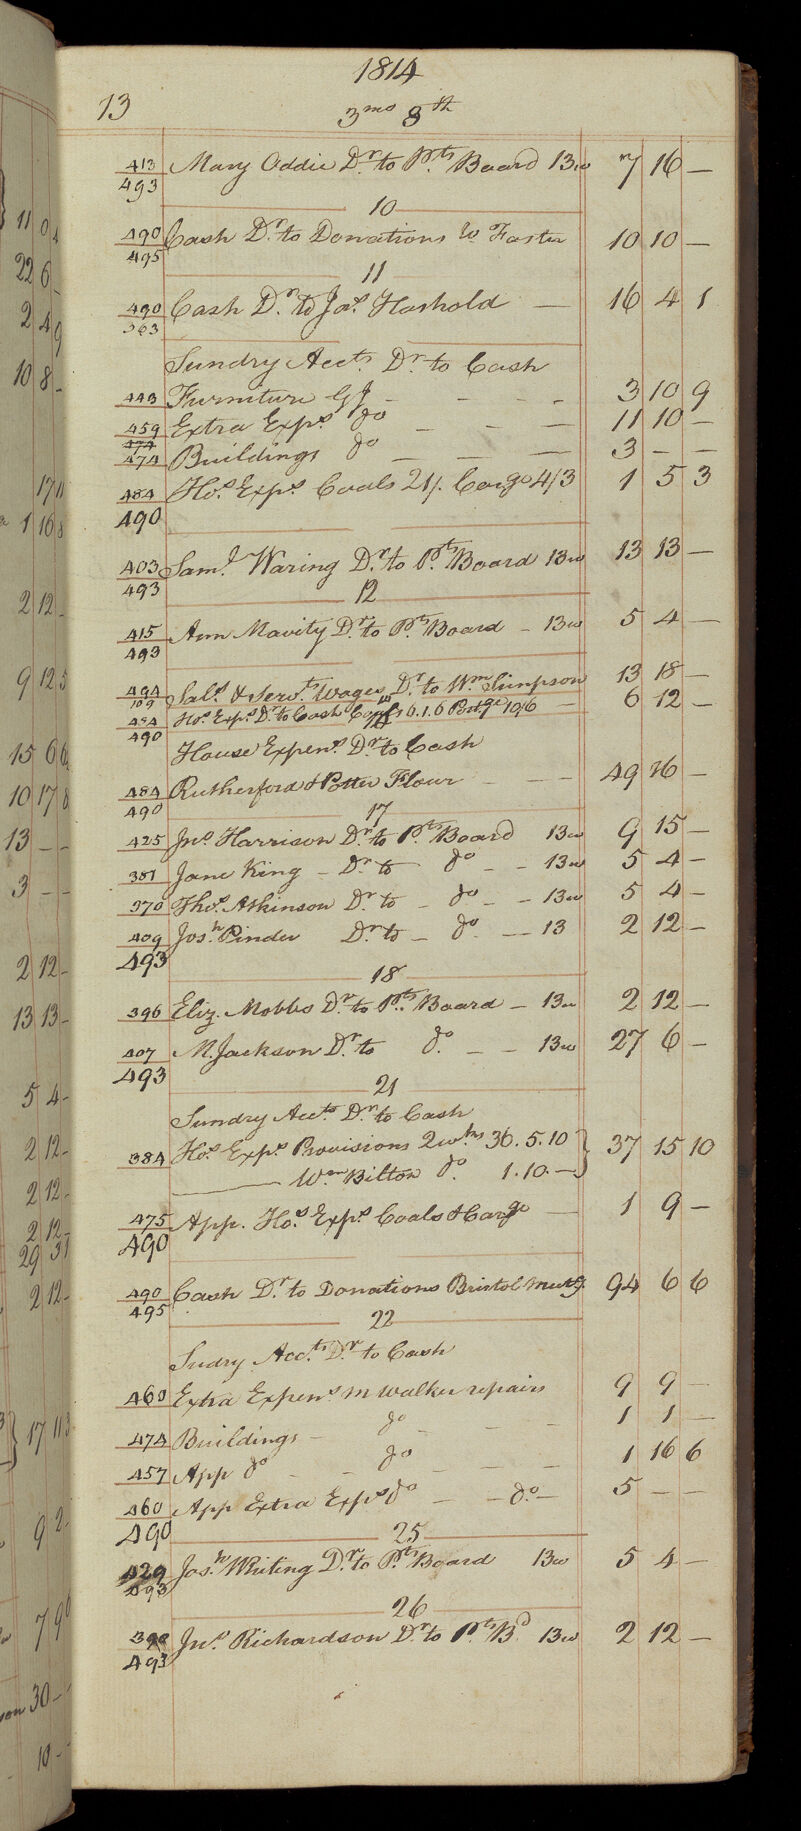 1814
13 3mo 8th
413 Mary Oddie Dr. to Pts. Board 13w 7 16 —
493
10
490 Cash Dr. to Donations W. Foster 10 10 —
495
11
490 Cash Dr. to Jas. Hoshold — 16 4 1
363
Sundry Accts. Dr. to Cash
443 Furniture GJ - - - - 3 10 9
459 Extra Exps. do — — — 11 10 —
474
474 Buildings do — — — 3 — —
484 Hos. Exps. Coals 21/. Cargo 4/3 1 5 3
490
403 Saml. Waring Dr. to Pts. Board 13w 13 13 —
493
12
415 Ann Mavity Dr. to Pts. Board - 13w 5 4 —
493
494 Sals. & Servts. Wages Dr. to Wm. Simpson 13 18 —
109
484 Hos. Exps. Dr. to Cash 6.1.6 Postge 10/6 — 6 12 —
490
House Expens. Dr. to Cash
484 Rutherford & Potter Flour - — — 49 16 —
490
17
425 Jno. Harrison Dr. to Pts. Board 13w 9 15 —
381 Jane King - Dr. to do - - 13w 5 4 —
370 Thos. Atkinson Dr. to - do - - 13w 5 4 —
409 Josh. Pinder Dr. to — do. — 13 2 12 —
493
18
396 Eliz. Mobbs Dr. to Pts. Board — 13w 2 12 —
407 M. Jackson Dr. to do. — — 13w 27 6 —
493
21
Sundry Accts. Dr. to Cash
384 Hos. Exps. Provisions 2 wks 36.5.10 } 37 15 10
——— Wm. Bilton do. 1.10.—
475 App. Hos. Exps. Coals & Cargo — 1 9 —
490
490 Cash Dr. to Donations Bristol Meetg. 94 6 6
495
22
Sudry Accts. Dr. to Cash
460 Extra Expens. M Walker repairs 9 9 —
474 Buildings - do - - - 1 1 —
457 App do - - do — — — 1 16 6
460 App Extra Exps. do — — do. — 5 — —
490
25
429 Josh. Whiting Dr. to Pts. Board 13w 5 4 —
493
26
Jno. Richardson Dr. to Pts. Bd 13w 2 12 —
493